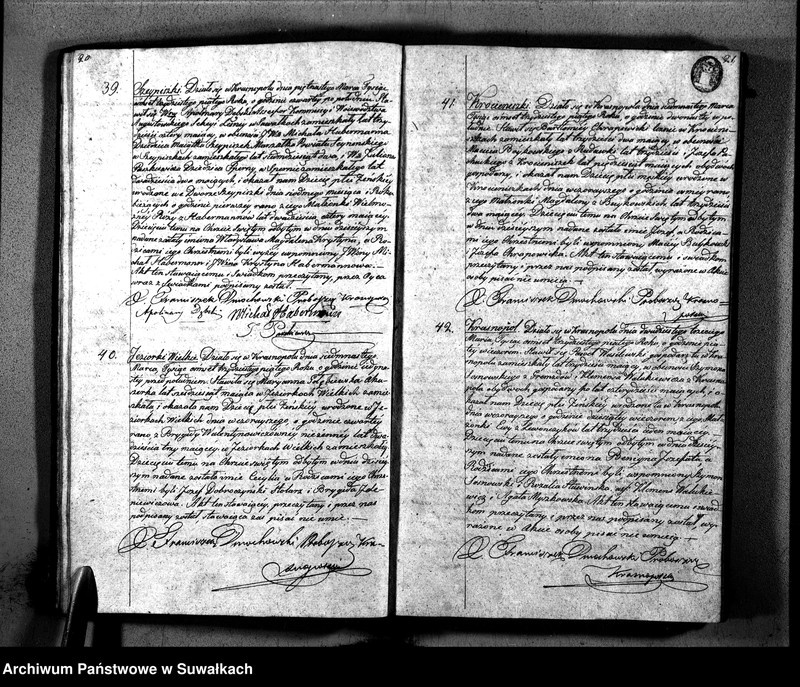 20
39. Szypiszki. Działo się w Krasnopolu dnia piętnastego Marca Tysiąc
ośmset trzydziestego piątego Roku, o godzinie czwartej po południu. Sta
wił się Wny Apolinary
Augustowskiego w Suwałkach zamieszkały lat trzy
dzieści cztery mający, w obecności Michała Habermanna
Dziedzica
w Szypiszkach zamieszkałego lat siedmdziesiąt dwa, i
Dziedzica w zamieszkałego lat
dwadzieścia dwa mających, i okazał nam Dziecię płci żeńskiej
urodzone we Dworze Szypiszki dnia siódmego miesiąca i Roku
bieżących o godzinie pierwszej rano z jego Małżonki Wielmo
żnej Róży z Habermannów lat dwadzieścia cztery mającej.
Dziecięciu temu na Chrzcie świętym odbytym w dniu dzisiejszym
nadane zostały imiona Władysława Magdalena Krystyna, a Ro
dzicami jego Chrzestnemi byli wyżej wspomniony Mi
chał Habermann i Krystyna Habermannowa.
Akt ten stawającemu i świadkom przeczytany, przez Ojca
wraz z Świadkami podpisany został.
X. Franciszek Dmochowski Proboszcz Krasnopo
Michał Habermann
40. Jeziorki Wielkie. Działo się w Krasnopolu dnia siedmnastego
Marca Tysiąc ośmset trzydziestego piątego Roku, o godzinie jedyna
stej przed południem. Stawiła się Maryanna Aku
szerka lat sześdziesiąt mająca w Jeziorkach Wielkich zamie
szkała i okazała nam Dziecię płci żeńskiej urodzone w Je
ziorkach Wielkich dnia wczorajszego, o godzinie czwartej
rano z Brygidy Walentynowiczównej niezamężnej lat dwa
dzieścia trzy mającej w Jeziorkach Wielkich zamieszkałej.
Dziecięciu temu na Chrzcie świętym odbytym w dniu dzisiej
szym nadane zostało imie Cecylia a Rodzicami jego Chrze
stnemi byli Józef Dobroczyński Stolarz i Brygida
Akt ten stawającej przeczytany i przez nas
podpisany został stawająca zaś pisać nie umie. —
X. Franciszek Dmochowski Proboszcz Kra
snopolski
21
41. Krucieniszki. Działo się w Krasnopolu dnia Marca
Tysiąc ośmset trzydziestego piątego Roku, o godzinie dwunastej w po
łudnie. Stawił się Bartłomiej Chropowski w Krucieni
szkach zamieszkały lat trzydzieści dwa mający, w obecności
Macieja Buykowskiego z
z Krucieniszek lat pięćdziesiąt mających obydwóch
gospodarzy, i okazał nam Dziecię płci męzkiej urodzone w
Krucieniszkach dnia wczorajszego o godzinie rano
z jego Małżonki Magdaleny z Buykowskich lat trzydzieści
dwa mającej. Dziecięciu temu na Chrzcie Świętym odbytym
w dniu dzisiejszym nadane zostało imie Józef, a Rodzica
mi jego Chrzestnemi byli wspomniony Maciej Buykowski
i Zofia Chropowska. Akt ten stawającemu i świadkom
przeczytany i przez nas podpisany został, wyrażone w Akcie
osoby pisać nie umieją. —
X. Franciszek Dmochowski Proboszcz Krasno
polski
42. Krasnopol. Działo się w Krasnopolu dnia dwudziestego trzeciego
Marca Tysiąc ośmset trzydziestego piątego Roku, o godzinie pią
tej wieczorem. Stawił się Paweł Wasilewski gospodarz tu w Kra
snopolu zamieszkały lat trzydzieści mający, w obecności Szymona
Sosnowskiego z i Klemensa Walukiewicza z Krasno
pola obydwóch gospodarzy po lat czterdzieści mających, i o
kazał nam Dziecię płci żeńskiej urodzone tu w Krasnopolu
dnia wczorajszego o godzinie dziesiątej wieczorem z jego Mał
żonki Ewy z lat trzydzieści jeden mającej.
Dziecięciu temu na Chrzcie świętym odbytym w dniu dzisiej
szym nadane zostały imiona Benigna Józefata a
Rodzicami jego Chrzestnemi byli wspomniony Szymon
Sosnowski i Rozalia, asys. Klemens Walukie
wicz i Agata Myszkowska. Akt ten stawającemu i świad
kom przeczytany, i przez nas podpisany został, wy
rażone w Akcie osoby pisać nie umieją. —
X. Franciszek Dmochowski Proboszcz
Krasnopolski
Archiwum Państwowe w Suwałkach